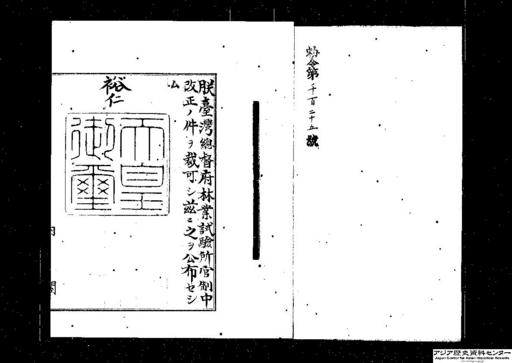 勅令第千百二十五號
朕臺灣總督府林業試驗所官制中
改正ノ件ヲ裁可シ茲ニ之ヲ公布セシ
ム
裕仁
天皇
御璽
内閣
アジア歴史資料センター
Japan Center for Asian Historical Records